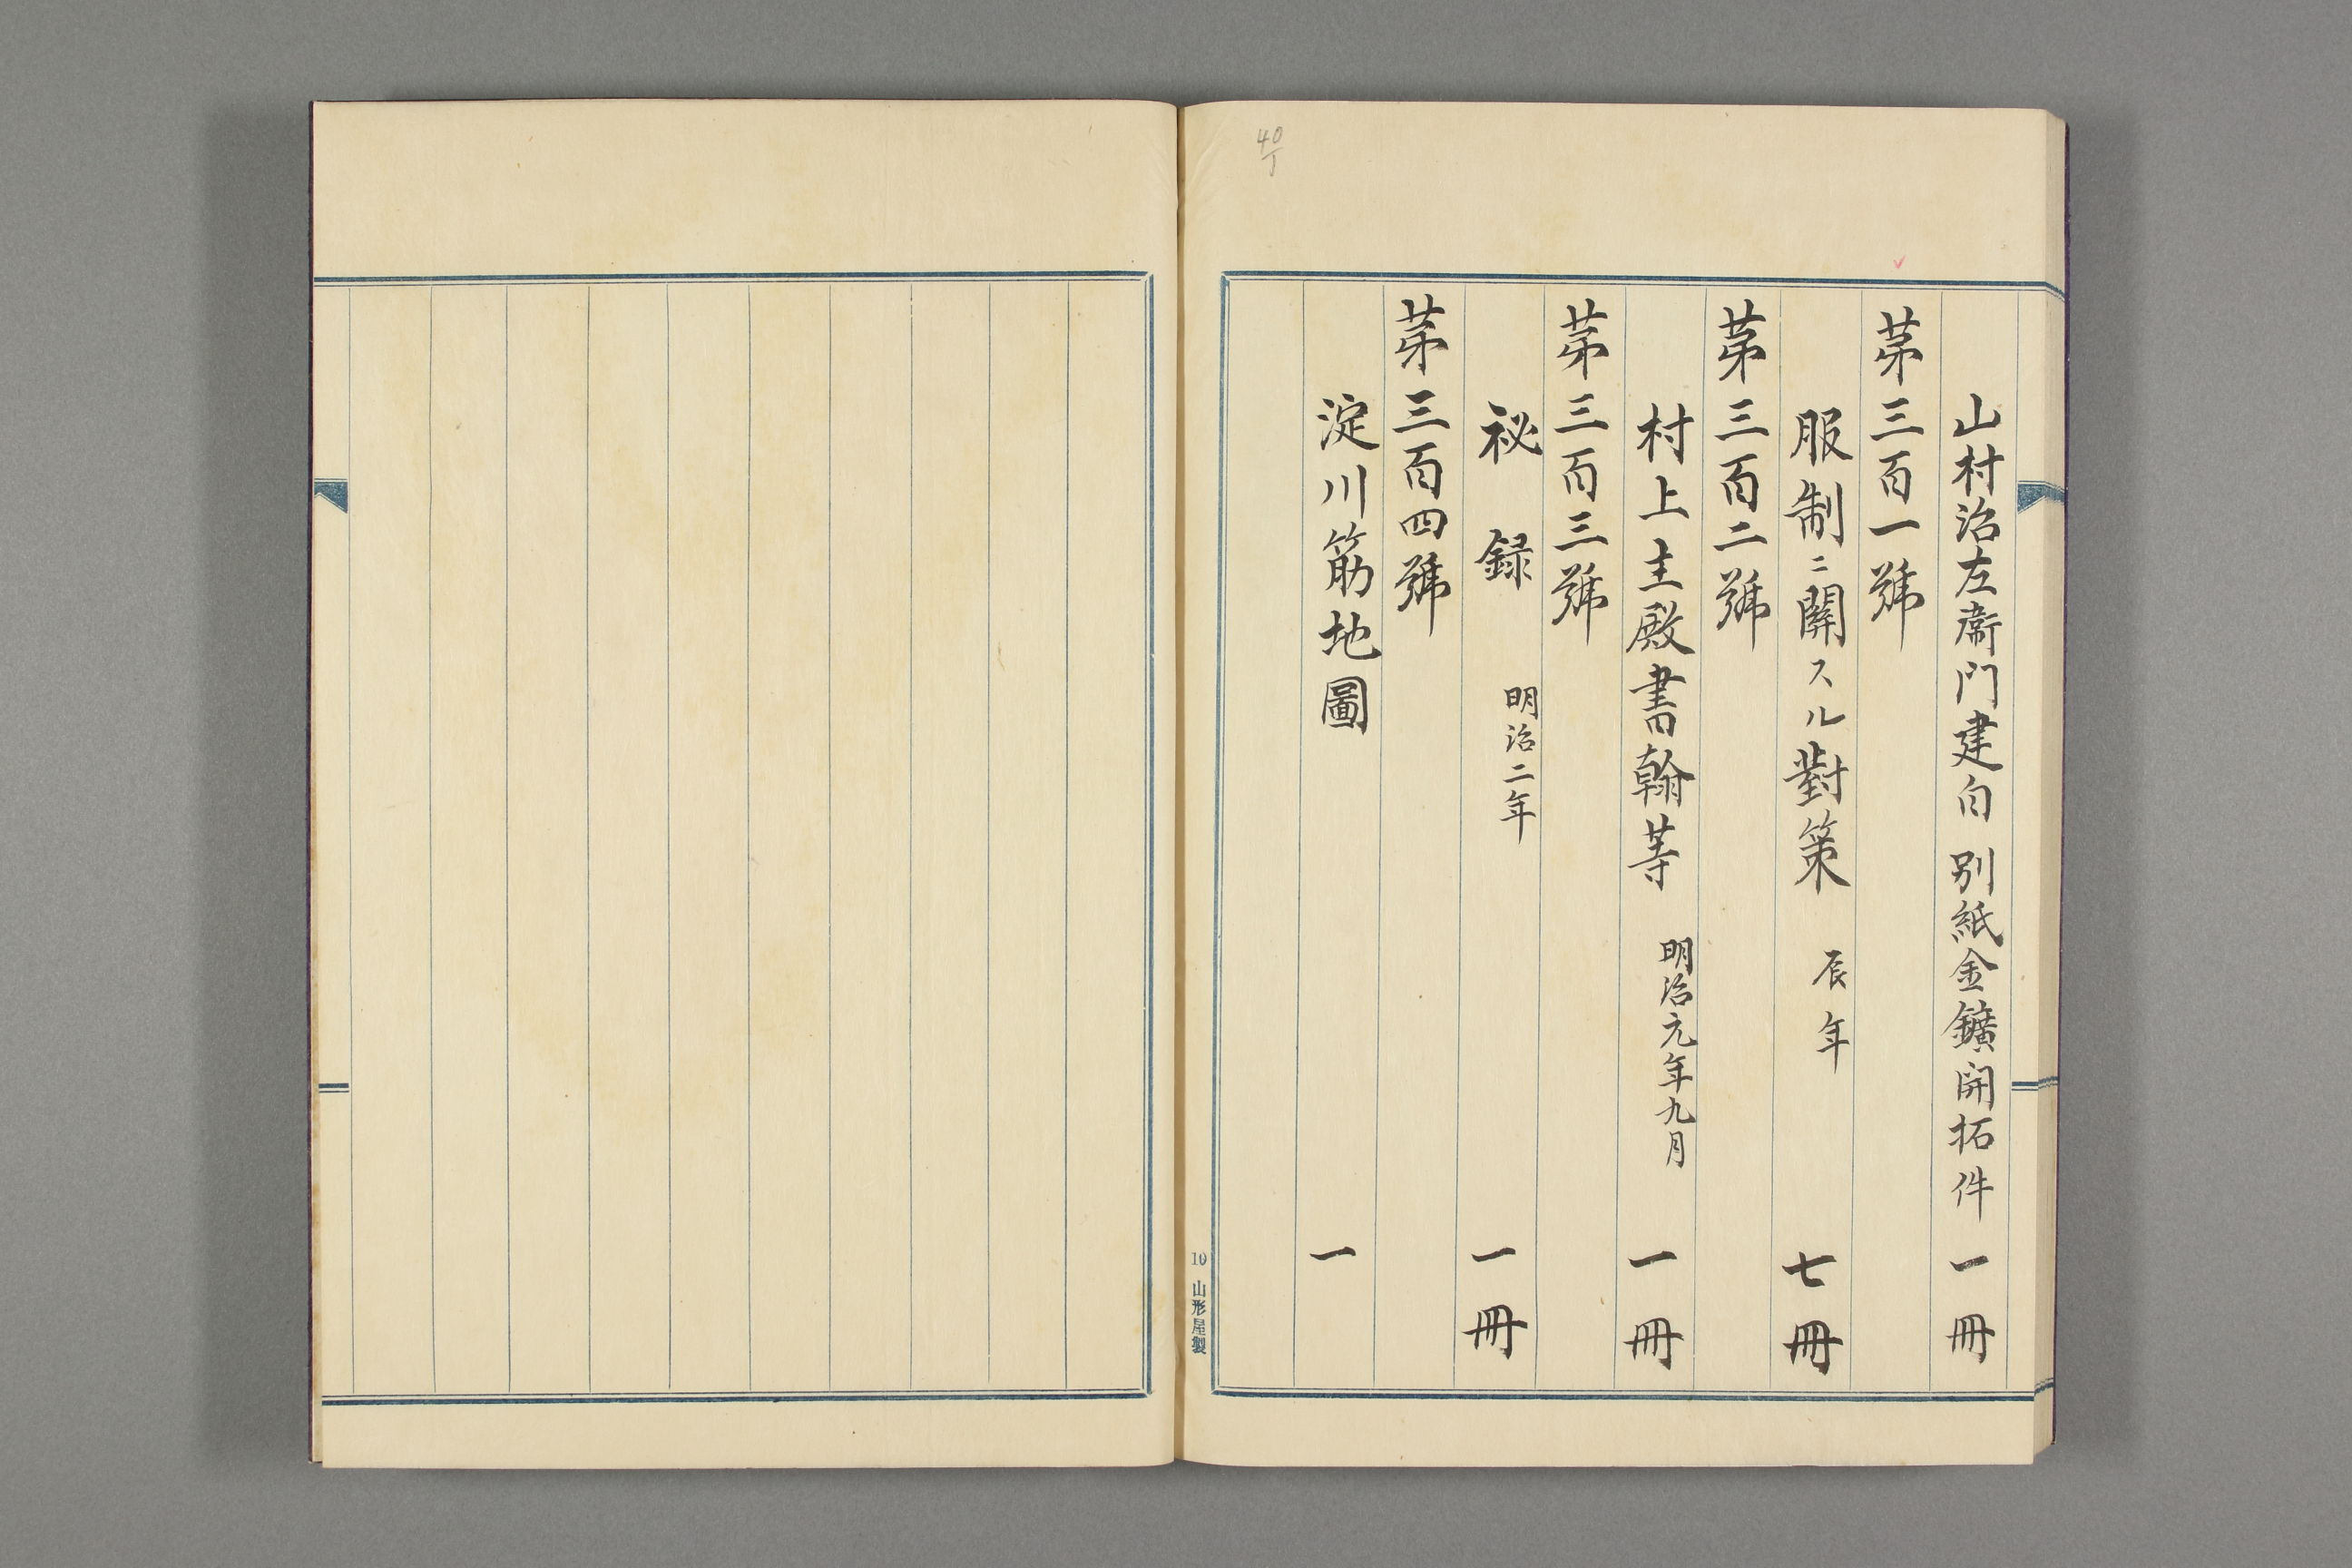 山村治左衞門建白 別紙金鑛開拓件 一冊
第三百一號
服制ニ關スル對策 辰年 七冊
第三百二號
村上主殿書翰等 明治元年九月 一冊
第三百三號
祕錄 明治二年 一冊
第三百四號
淀川筋地圖 一
10 山形屋製
40